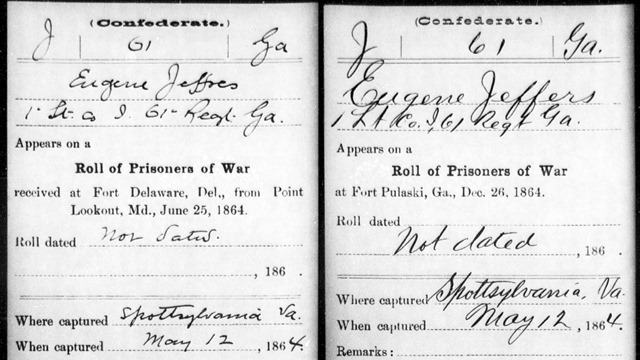 (Confederate.)
J | 61 | Ga
Eugene Jeffres
1 Lt Co I. 61 Regt. Ga.
Appears on a
Roll of Prisoners of War
received at Fort Delaware, Del., from Point
Lookout, Md., June 25, 1864.
Roll dated Not dated.
, 186 .
Where captured Spottsylvania Va.
When captured May 12 , 1864.
(Confederate.)
J | 61 | Ga.
Eugene Jeffers
1 Lt Co. I, 61 Regt Ga.
Appears on a
Roll of Prisoners of War
at Fort Pulaski, Ga., Dec. 26, 1864.
Roll dated
Not dated , 186 .
Where captured Spottsylvania, Va.
When captured May 12 , 1864.
Remarks: